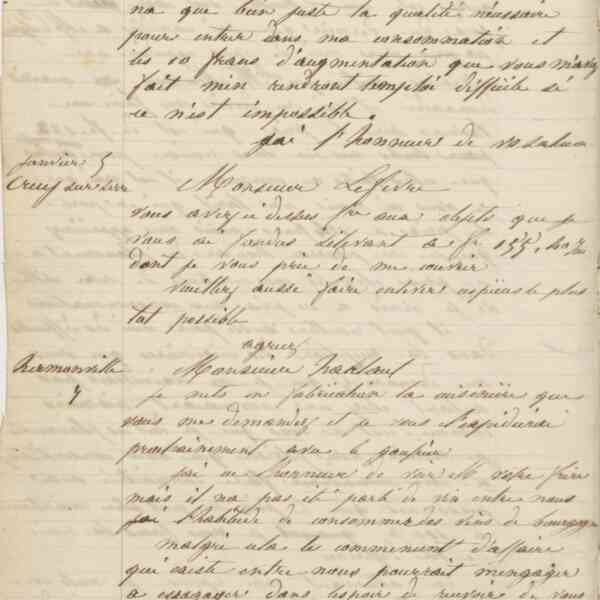 na que bien juste la qualité nécessaire
pour entrer dans ma consommation et
les 10 frans d'augmentation que vous m'avez
fait m'en rendront l'emploi difficile si
ce n'est impossible.
j'ai l'honneur de vo saluer
Janvier 5
Crecy sur Serre
Monsieur Lefevre
vous avez ci dessus objets que je
vous ai s'élevant a fr 155,
dont je vous prie de me couvrir
veuillez aussi faire enlever espieces le plus
tot possible
agreez
Hermonville
7
Monsieur
je mets en fabrication la que
vous me demandez et je vous l'expedierai
prochainement avec le goupier
j'ai eu l'honneur de voir Mr votre frère
mais il na pas été parlé de vin entre nous
j'ai l'habitude de consommer des vins de bourgogne
malgré cela le commencent d'affaire
qui existe entre nous pourrait m'engager
a essayer dans l'espoir de recevoir de vous